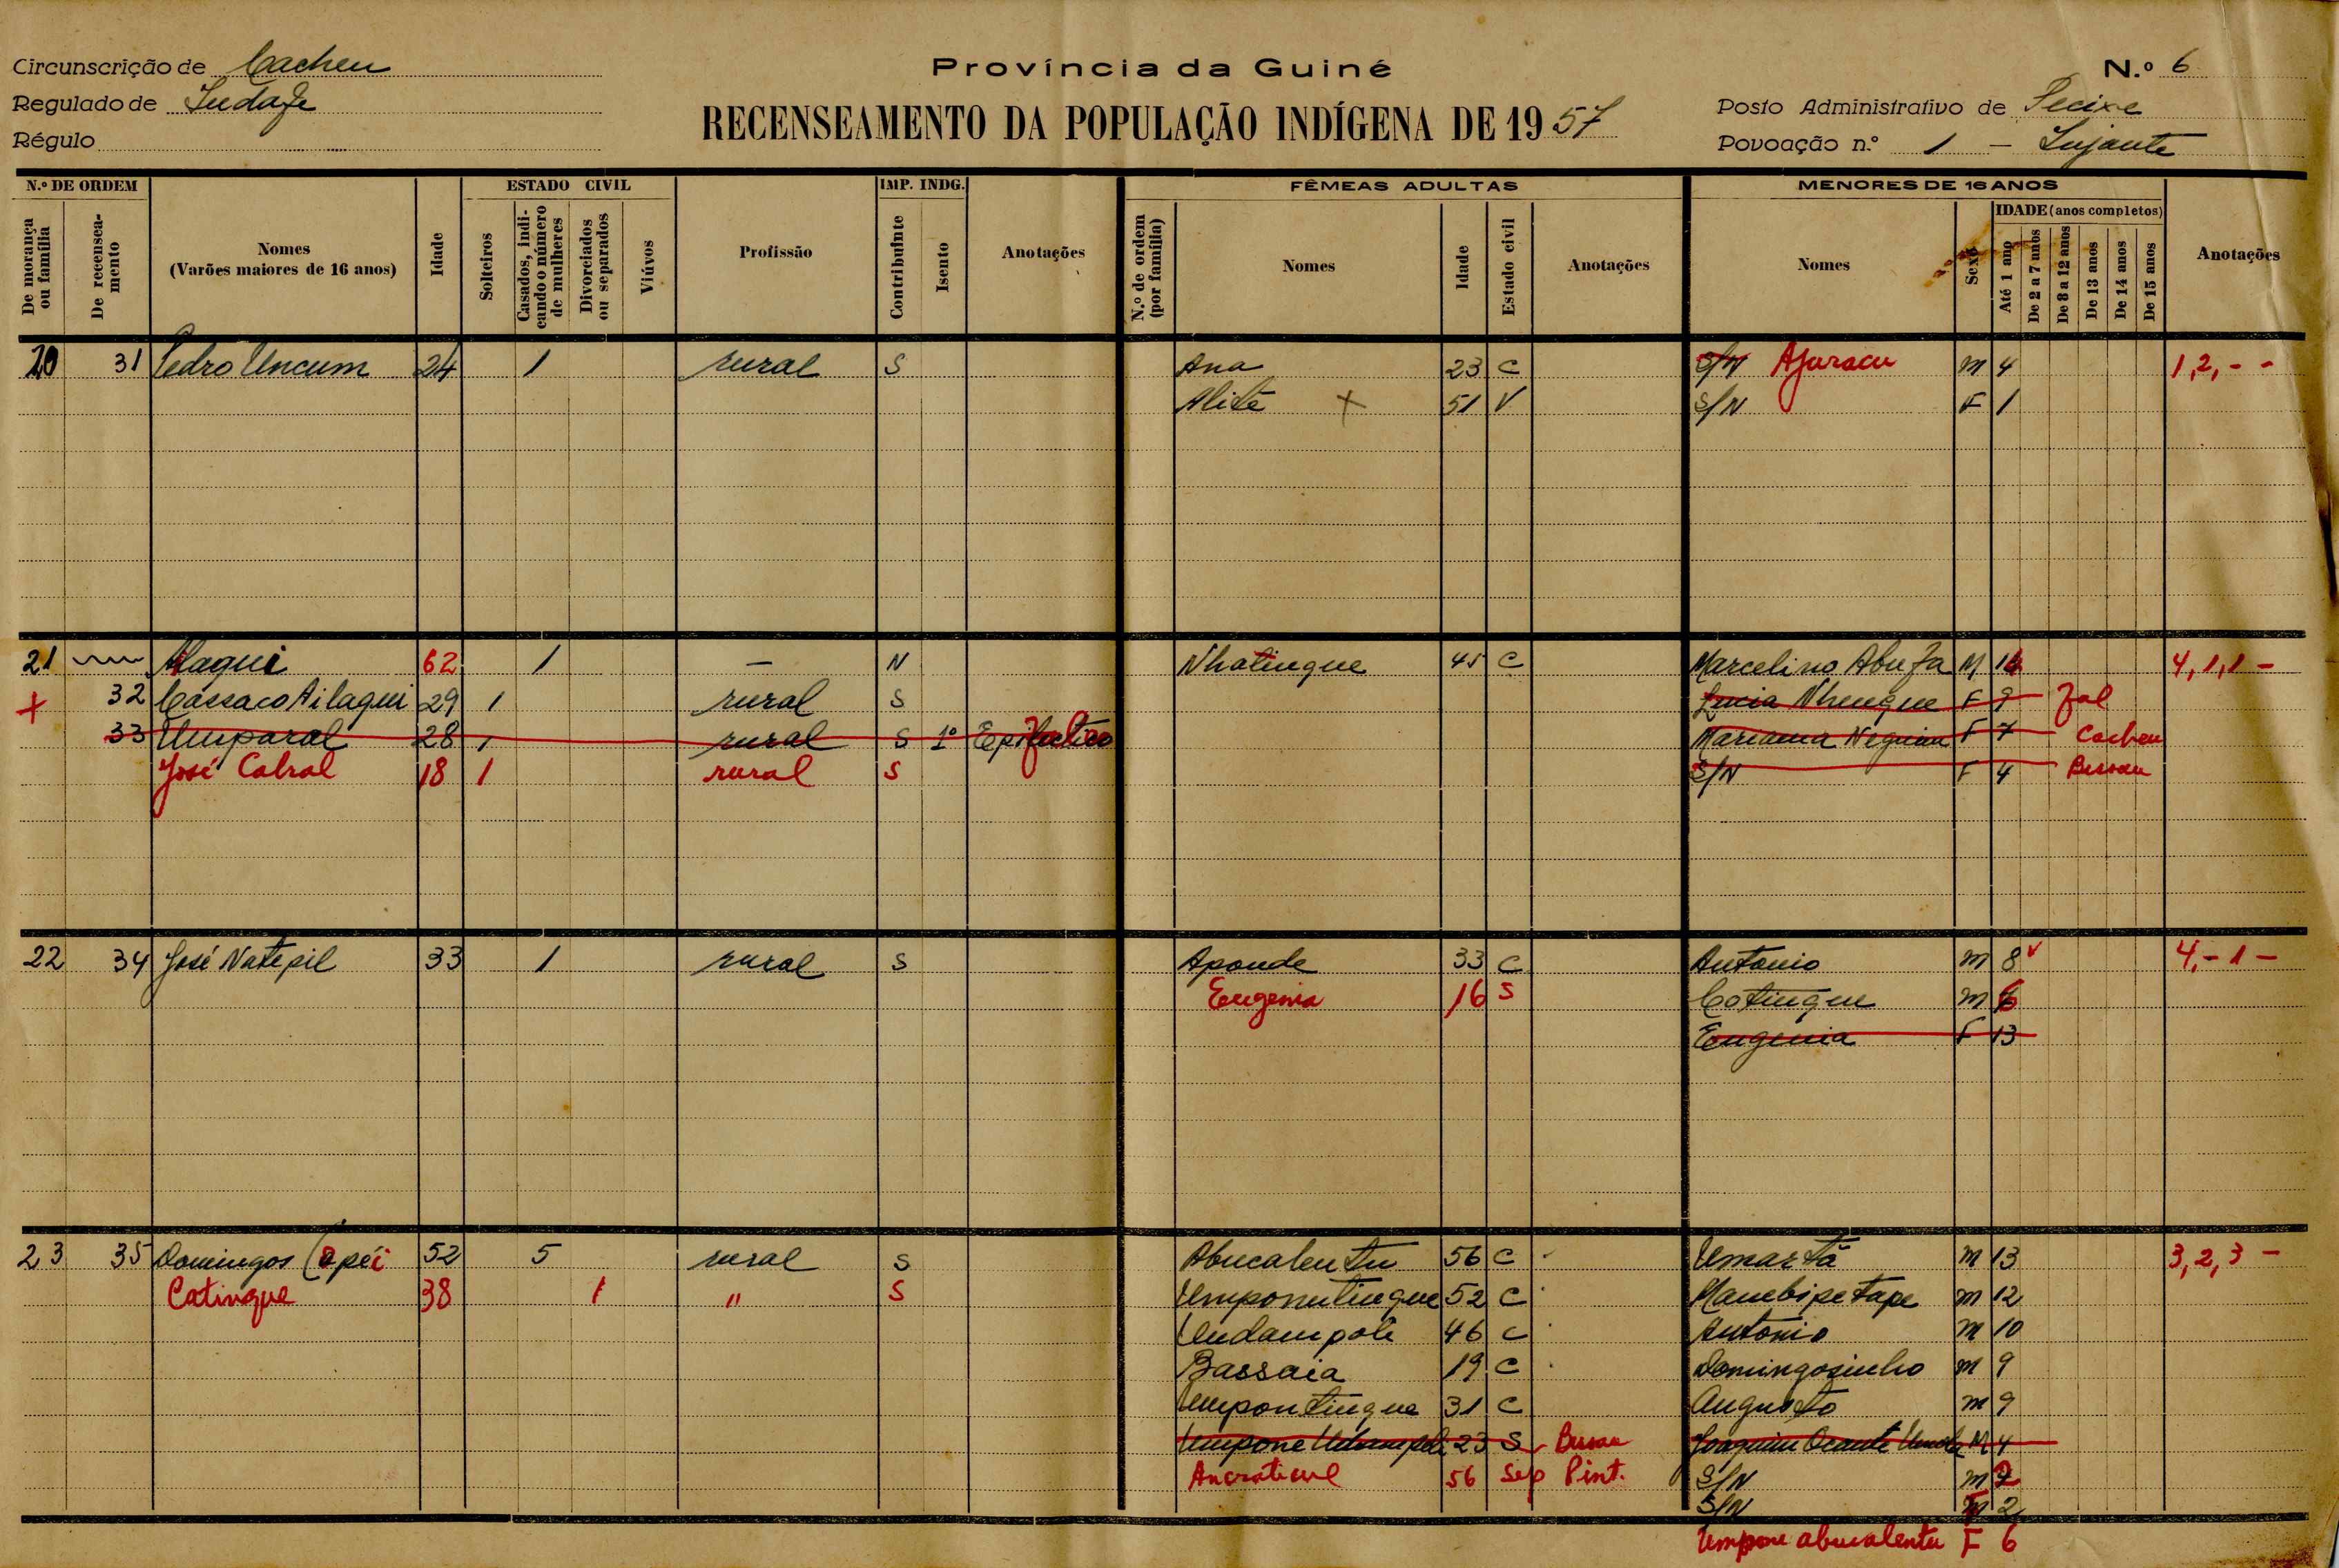 Circunscrição de Cacheu
Província da Guiné
N.º 6
Regulado de
RECENSEAMENTO DA POPULAÇÃO INDÍGENA DE 1957
Posto Administrativo de Pecixe
Régulo
Povoação n.º 1 –
N.º DE ORDEM
De morança ou família
De recenseamento
Nomes
(Varões maiores de 16 anos)
Idade
ESTADO CIVIL
Solteiros
Casados, indicando o número de mulheres
Divorciados ou separados
Viúvos
Profissão
IMP. INDG.
Contribuinte
Isento
Anotações
FÊMEAS ADULTAS
N.º de ordem (por família)
Nomes
Idade
Estado civil
Anotações
MENORES DE 16 ANOS
Nomes
Sexo
IDADE (anos completos)
Até 1 ano
De 2 a 7 anos
De 8 a 12 anos
De 13 anos
De 14 anos
De 15 anos
Anotações
20 31 Pedro Uncum 24 1 rural S Ana 23 C S/N Ajuracu M 4 1,2,- -
Alité + 51 V S/N F 1
21 62 1 – N Nhatingue 45 C Marcelino M 4,1,1 -
+ 32 Cassaco Ailaqui 29 1 rural S Lucia Nhengue F 9 Fal
33 Umparal 28 1 rural S 1º Mariama F 7 Cacheu
José Cabral 18 1 rural S S/N F 4 Bissau
22 34 José Natepil 33 1 rural S Aponde 33 C Antonio M 8 4,- 1 -
Eugenia 16 S Cotingue M 6
Eugenia F 13
23 35 Domingos 52 5 rural S Abucalentu 56 C Umartá M 13 3,2,3 -
Catinque 38 1 " S Umponutingue 52 C Manebipetape M 12
Undampoti 46 C Antonio M 10
Bassaia 19 C Domingosinho M 9
Umpontingue 31 C Augusto M 9
Umpone 23 S Bissau Joaquim Ocante M 4
56 Sep Pint. S/N M 2
S/N F 2
Umpone abucalentu F 6